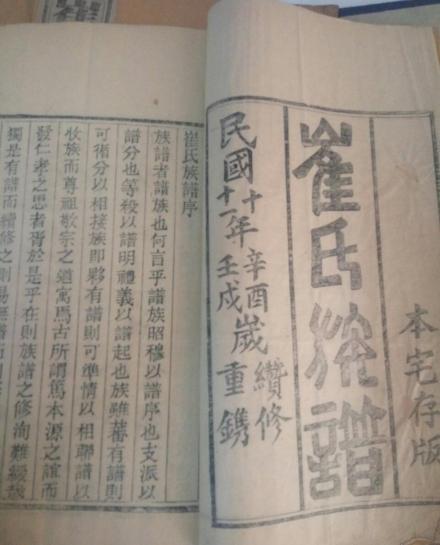 本宅存版
崔氏族譜
民國十年辛酉歲續修
十一年壬戌重鐫
崔氏族譜序
族譜者譜族也何言乎譜族昭穆以譜序也支派以
譜分也等殺以譜明禮義以譜起也族雖蕃有譜則
可衍分以相接族即夥有譜則可準情以相聯譜以
收族而尊祖敬宗之道寓焉古所謂篤本源之誼而
發仁孝之思者胥於是乎在則族譜之修洵難緩哉
獨是有譜而續修之則易無譜而